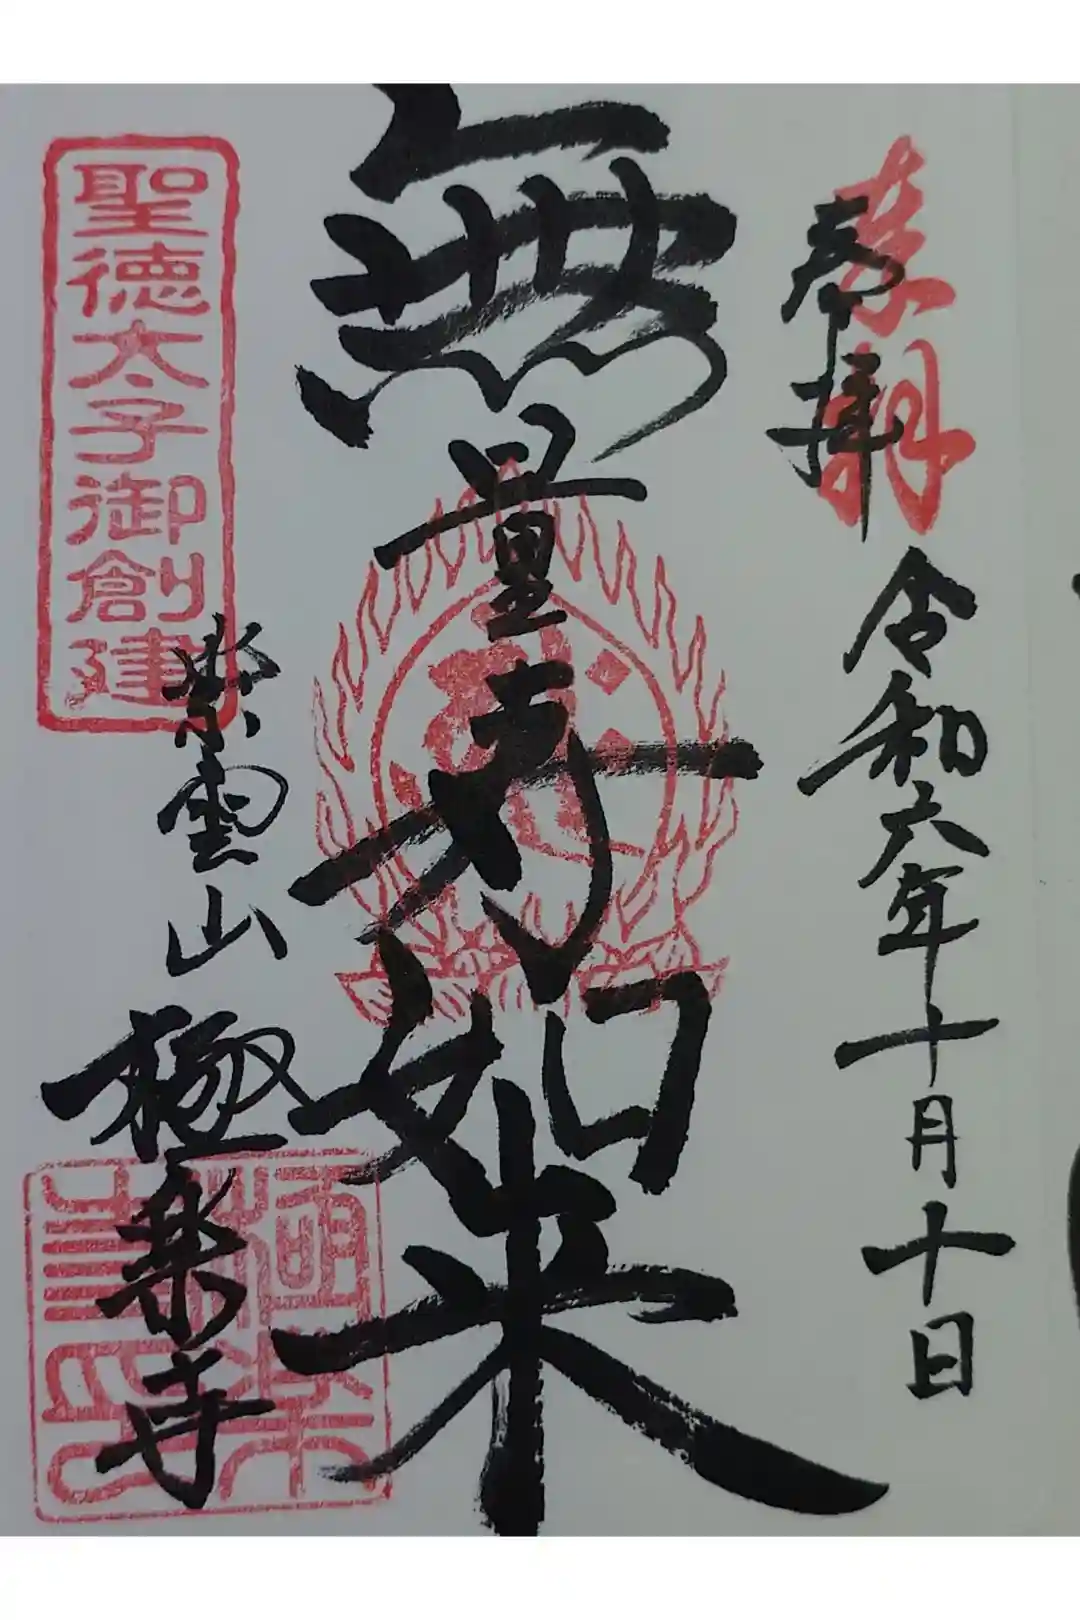 奉拝
参拝
令和六年十月十日
無量寿如来
聖徳太子御創建
紫雲山
極楽寺
極楽寺印